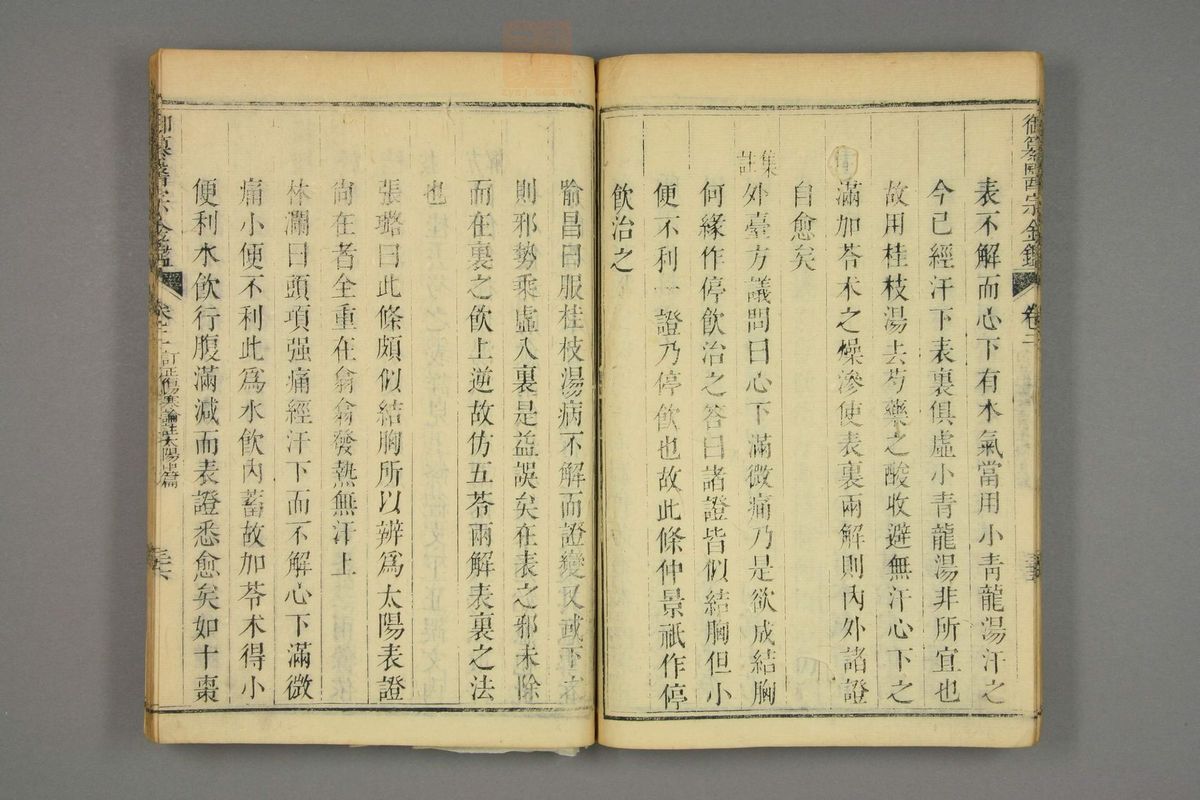 御纂醫宗金鑑
卷二
表不解而心下有水氣當用小靑龍湯汗之
今已經汗下表裏俱虛小靑龍湯非所宜也
故用桂枝湯去芍藥之酸收避無汗心下之
滿加苓术之燥滲使表裏兩解則內外諸證
自愈矣
集註
外臺方議問曰心下滿微痛乃是欲成結胸
何緣作停飮治之答曰諸證皆似結胸但小
便不利一證乃停飮也故此條仲景祇作停
飮治之
喻昌曰服桂枝湯病不解而證變又或下之
則邪勢乘虛入裏是益誤矣在表之邪未除
而在裏之飮上逆故仿五苓兩解表裏之法
也
張璐曰此條頗似結胸所以辨爲太陽表證
尙在者全重在翕翕發熱無汗上
林瀾曰頭項强痛經汗下而不解心下滿微
痛小便不利此爲水飮內蓄故加苓术得小
便利水飮行腹滿減而表證悉愈矣如十棗
御纂醫宗金鑑
卷二
訂正傷寒論註太陽中篇
三六